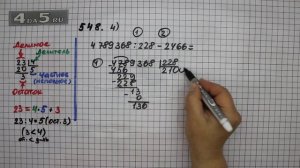 4DA5.RU
548. 4)
① ②
4789368:228-2466=
Делимое
делитель
23 4
20 5
3
частное
(неполное)
Остаток
23 = 4·5+3
23:4=5(ост.3)
(3<4)
①
4789368 228
456 2100
229
228
13
0
136